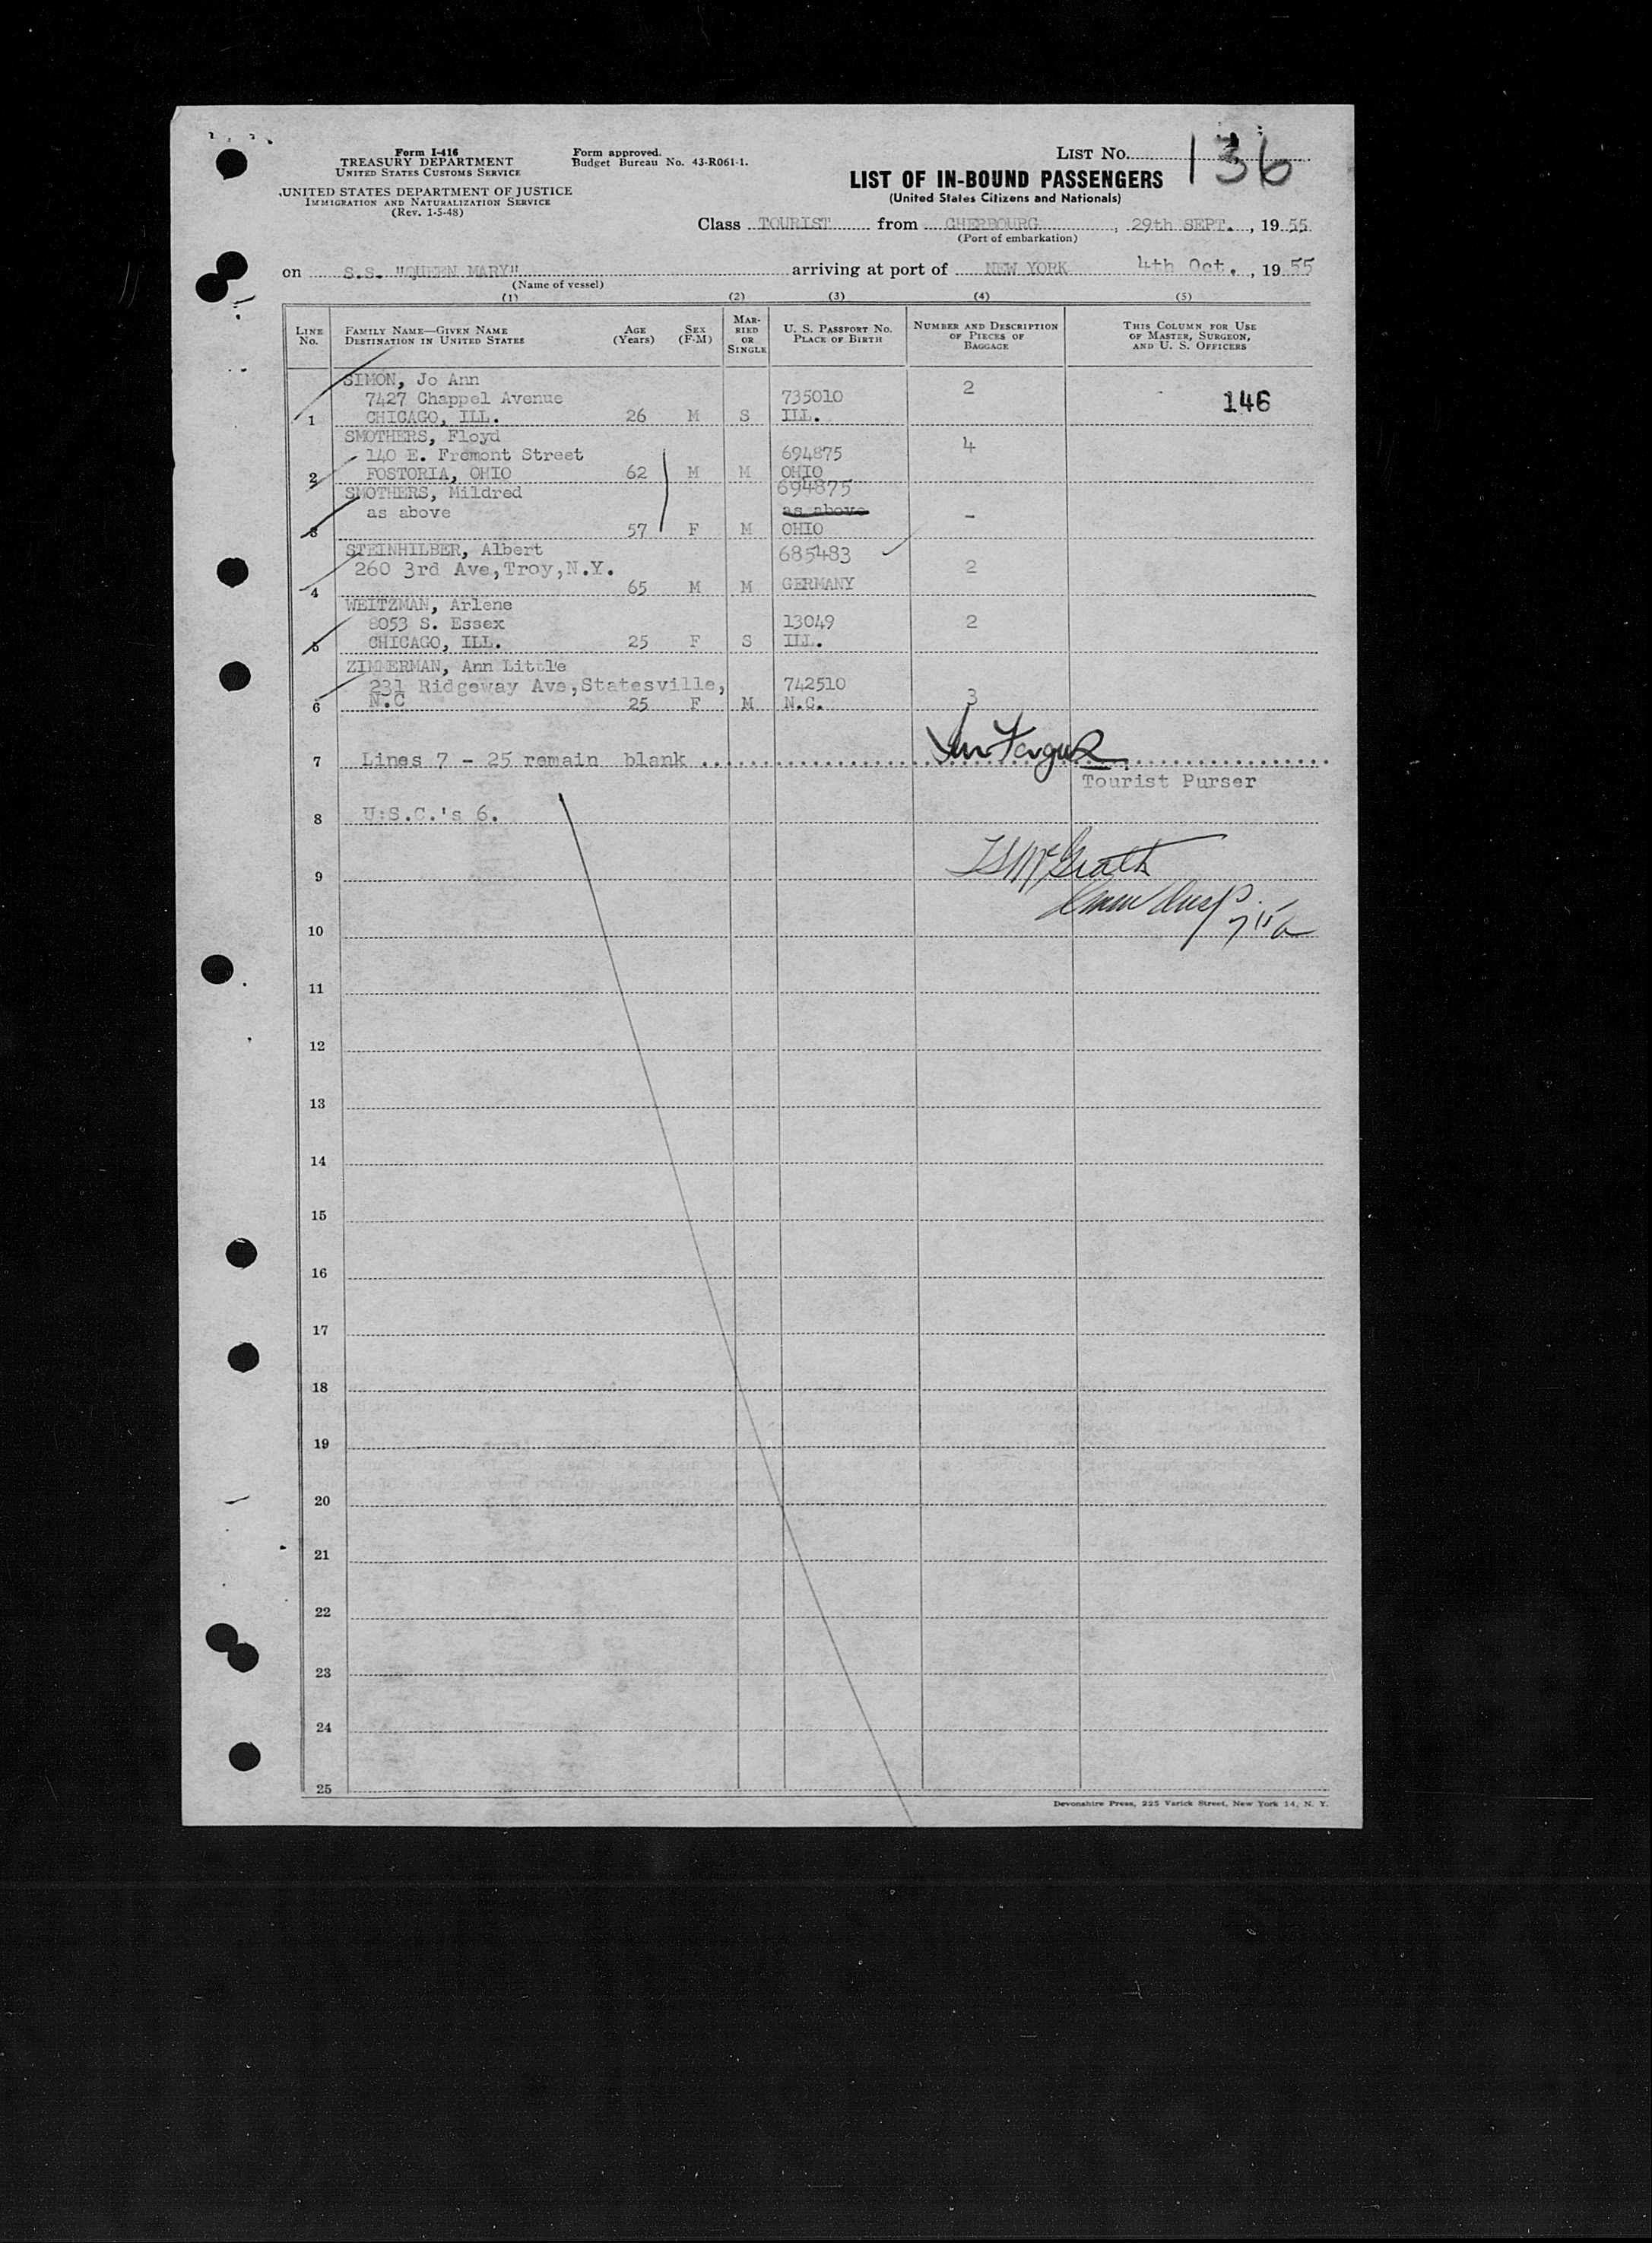 Form I-416
TREASURY DEPARTMENT
UNITED STATES CUSTOMS SERVICE
UNITED STATES DEPARTMENT OF JUSTICE
IMMIGRATION AND NATURALIZATION SERVICE
(Rev. 1-5-48)
Form approved.
Budget Bureau No. 43-R061-1.
LIST No. 136
LIST OF IN-BOUND PASSENGERS
(United States Citizens and Nationals)
Class TOURIST from CHERBOURG, 29th SEPT., 1955
(Port of embarkation)
on S.S. "QUEEN MARY" arriving at port of NEW YORK 4th Oct., 1955
(Name of vessel)
(1) (2) (3) (4) (5)
LINE No. FAMILY NAME—GIVEN NAME DESTINATION IN UNITED STATES AGE (Years) SEX (F-M) MARRIED OR SINGLE U. S. PASSPORT No. PLACE OF BIRTH NUMBER AND DESCRIPTION OF PIECES OF BAGGAGE THIS COLUMN FOR USE OF MASTER, SURGEON, AND U. S. OFFICERS
SIMON, Jo Ann 2
7427 Chappel Avenue 735010 146
1 CHICAGO, ILL. 26 M S ILL.
SMOTHERS, Floyd 4
140 E. Fremont Street 694875
2 FOSTORIA, OHIO 62 M M OHIO
SMOTHERS, Mildred 694875
as above as above -
3 57 F M OHIO
STEINHILBER, Albert 685483
260 3rd Ave, Troy, N.Y. 2
4 65 M M GERMANY
WEITZMAN, Arlene
8053 S. Essex 13049 2
5 CHICAGO, ILL. 25 F S ILL.
ZIMMERMAN, Ann Little
231 Ridgeway Ave, Statesville, 742510
6 N.C 25 F M N.C. 3
7 Lines 7 - 25 remain blank
Tourist Purser
8 U.S.C.'s 6.
McGrath
9
10
11
12
13
14
15
16
17
18
19
20
21
22
23
24
25
Devonshire Press, 225 Varick Street, New York 14, N. Y.